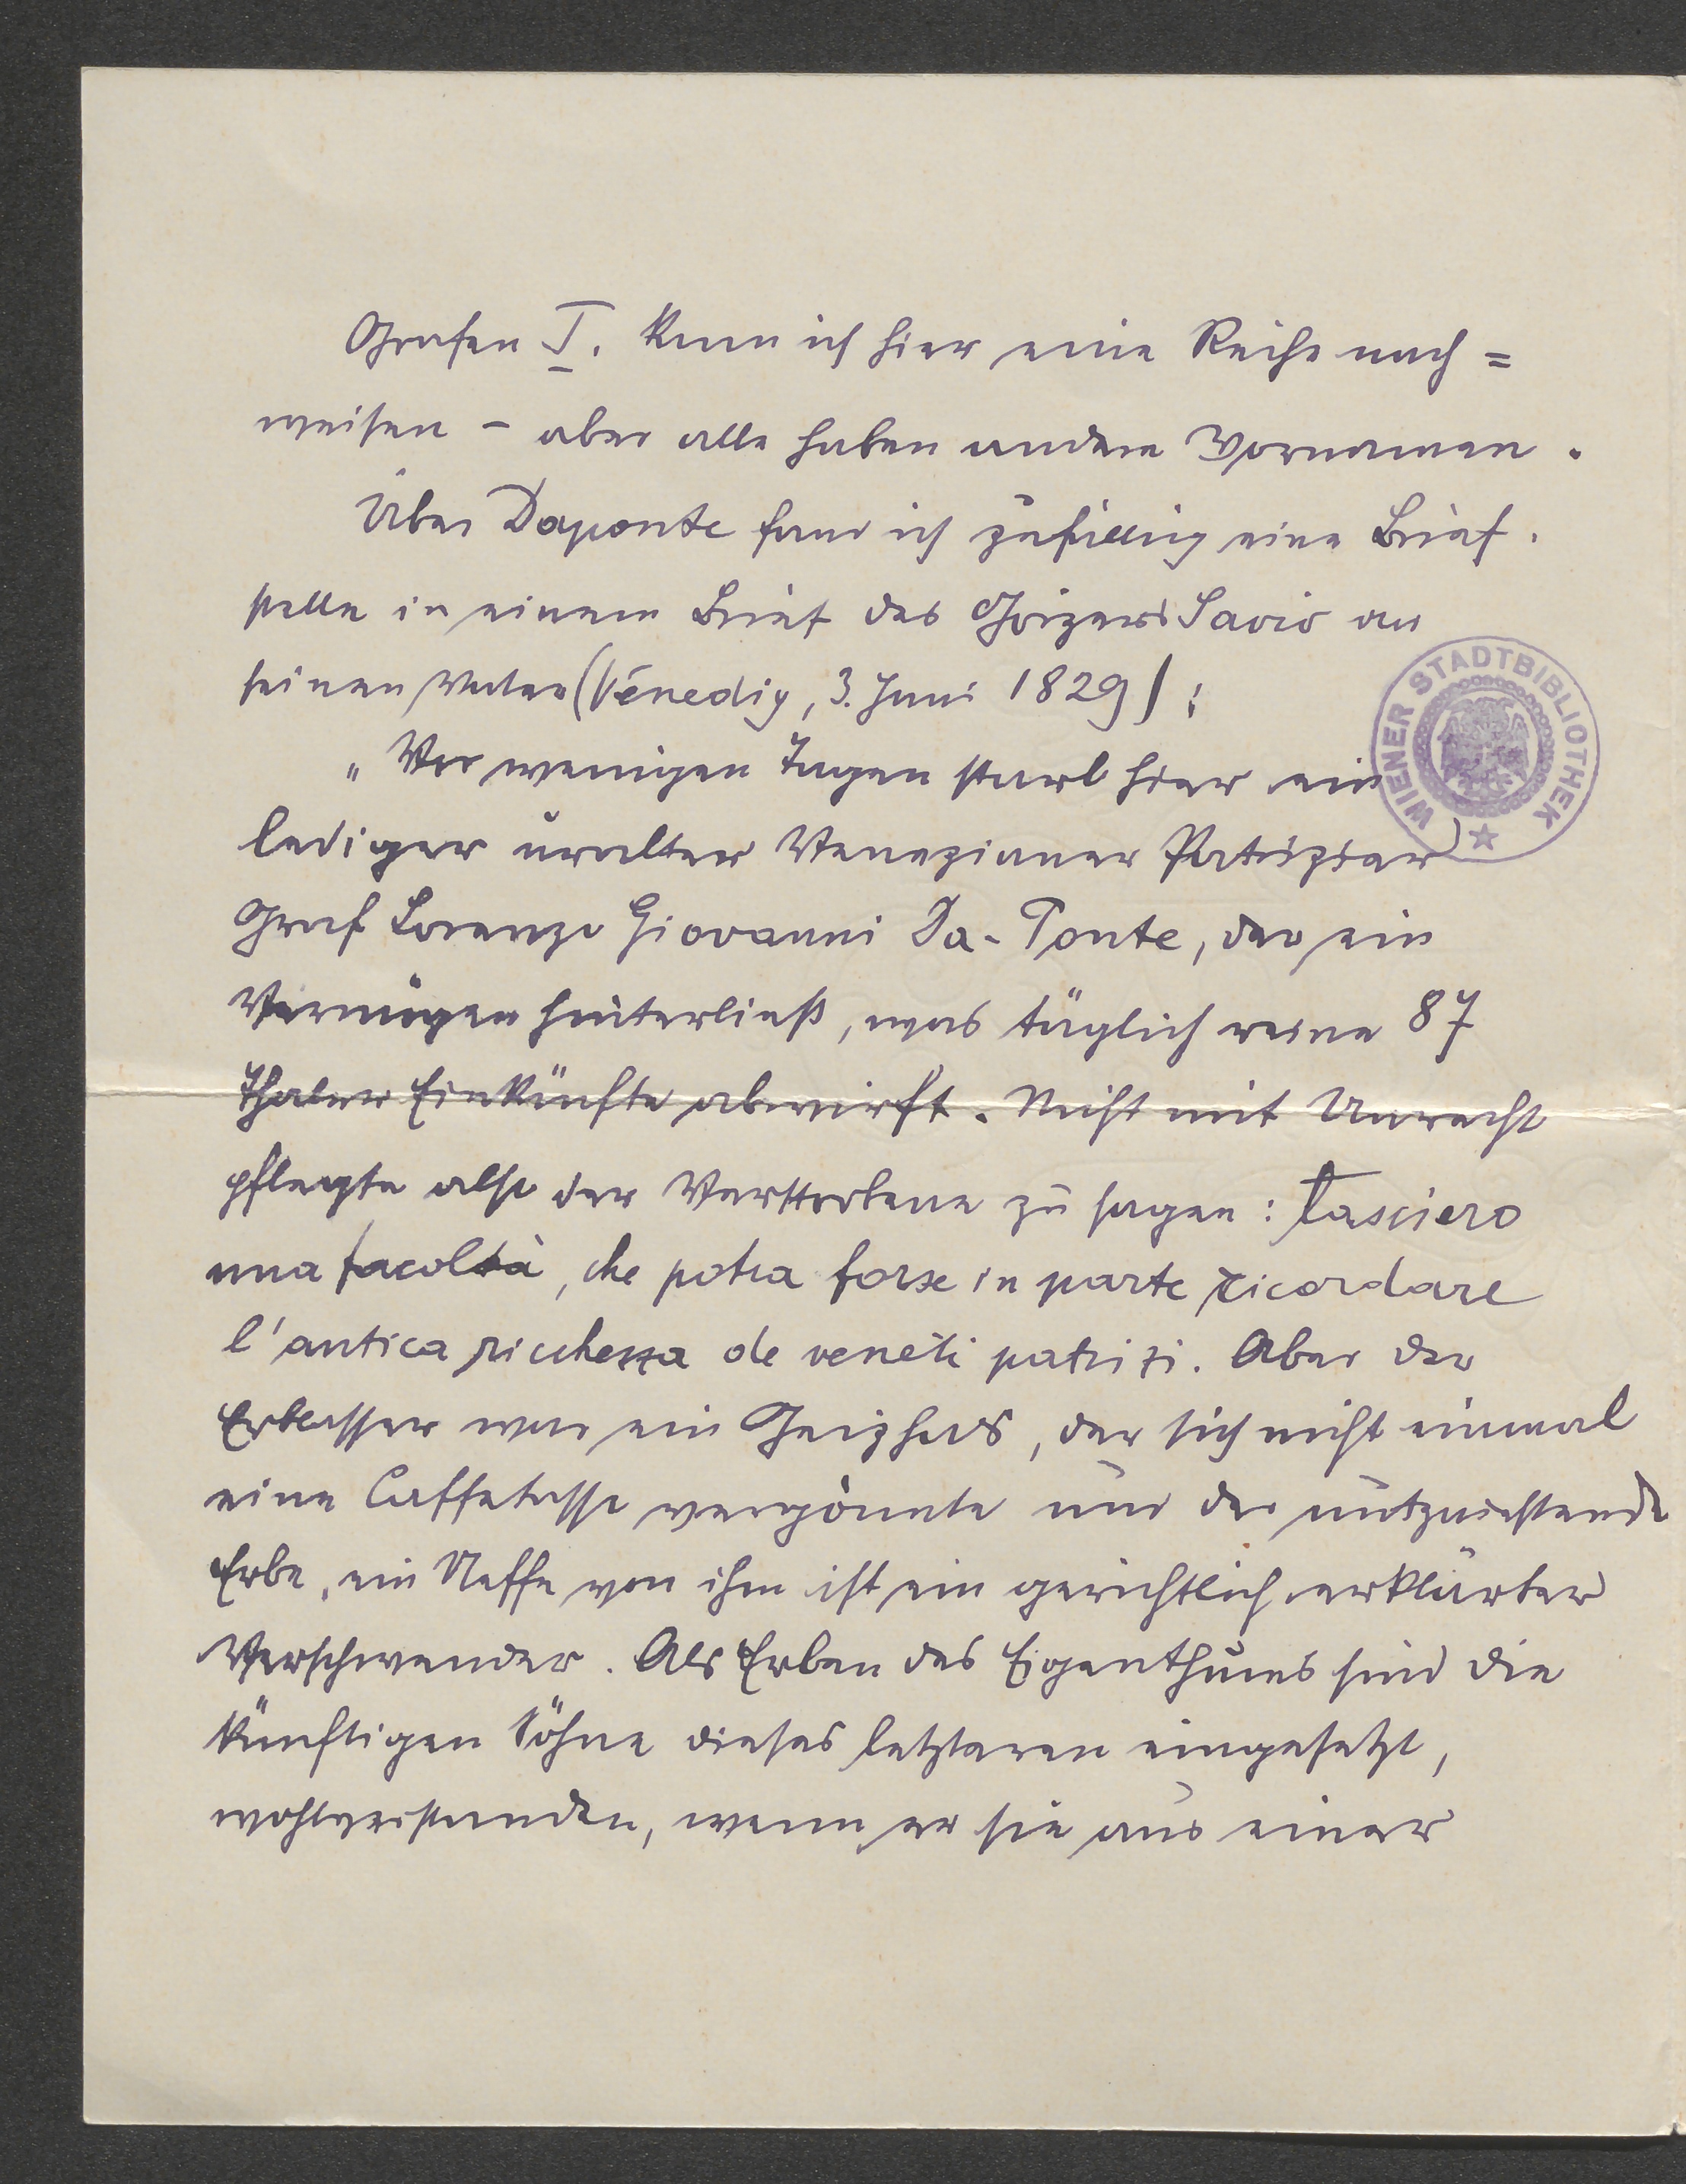 Grafen T. kann ich hier eine Reihe nach=
weisen – aber alle haben andere Vornamen.
Über Daponte fand ich zufällig eine Brief-
stelle in einem Brief des Görzers Savio an
seinen Vater (Venedig, 3. Juni 1829):
„Vor wenigen Tagen starb hier ein
lediger uralter Venezianer Patrizier
Graf Lorenzo Giovanni Da-Ponte, der ein
Vermögen hinterließ, was täglich reine 87
Thaler Einkünfte abwirft. Nicht mit Unrecht
pflegte also der Verstorbene zu sagen: Lasciero
una facoltà, che potra forse in parte ricordare
l'antica ricchezza de veneti patrizi. Aber der
Erblasser war ein Geizhals, der sich nicht einmal
eine Caffetasse vergönnte und der nutzniessende
Erbe, ein Neffe von ihm ist ein gerichtlich erklärter
Verschwender. Als Erben des Eigenthums sind die
künftigen Söhne dieses letzteren eingesetzt,
wohlverstanden, wenn er sie aus einer
WIENER STADTBIBLIOTHEK